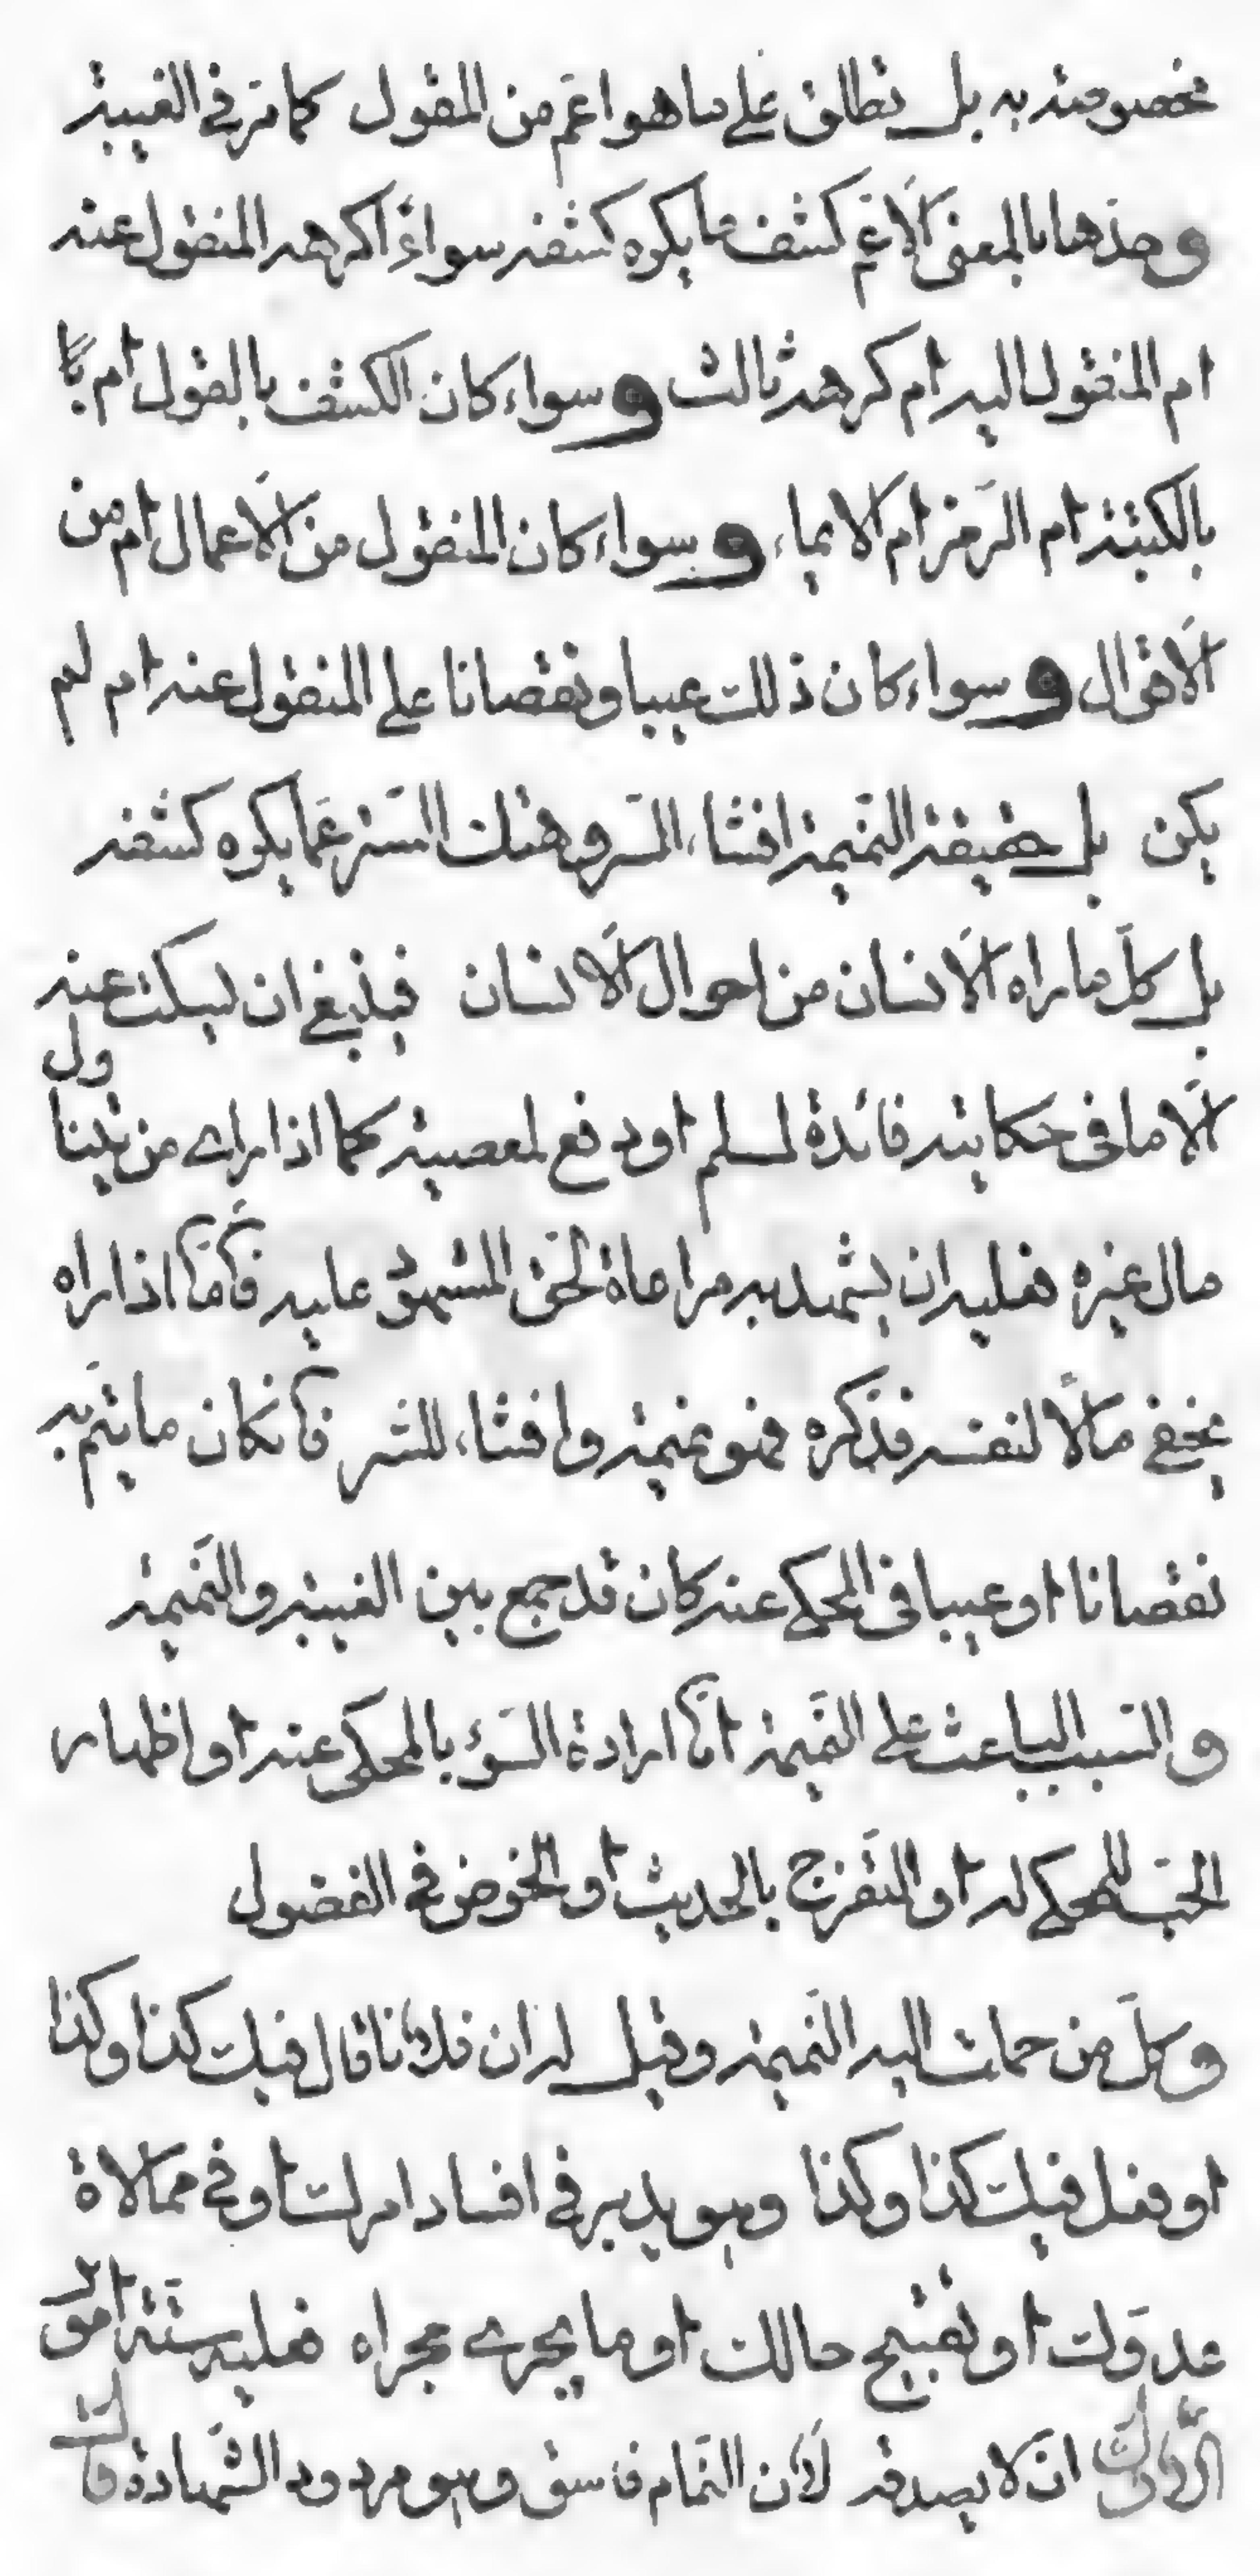 مخصوصة به بل تطلق على ما هو اعمّ من المقول كما مرّ في الغيبة
وحدّها بالمعنى الاعمّ كشف ما يكره كشفه سواءٌ اكرهه المنقول عنه
ام المنقول اليه ام كرهه ثالث وسواء كان الكشف بالقول ام با
بالكتبة ام الرّمز ام الايماء وسواء كان المنقول من الاعمال ام من
الاقوال وسواء كان ذلك عيبا ونقصانا على المنقول عنه ام لم
يكن بل حقيقة النّميمة افشاء السّر وهتك السّتر عمّا يكره كشفه
بل كلّ ما راه الانسان من احوال الانسان فينبغي ان يسكت عنه
الّا ما في حكايته فائدة لمسلم او دفع لمعصية كما اذا راى من يتناول
مال غيره فعليه ان يشهد به مراعاة لحقّ المشهود عليه فأمّا اذا راه
يخفي مالًا لنفسه فذكره فهو نميمة وافشاء للسّر فأن كان ما يتمّ به
نقصانا او عيبا في المحكي عنه كان قد جمع بين الغيبة والنّميمة
والسّبب الباعث على النّميمة امّا ارادة السّوء بالمحكي عنه او اظهار
الحبّ للمحكي له او التّفرّج بالحديث او الخوض في الفضول
وكلّ من حملت اليه النّميمة وقيل له ان فلانا قال فيك كذا وكذا
او فعل فيك كذا وكذا وهو يدبر في افساد امرك او في ممالاة
عدوّك او تقبيح حالك او ما يجري مجراه فعليه ستّة امور
الاوّل ان لا يصدقه لأنّ النّمام فاسق وهو مردود الشّهادة قال